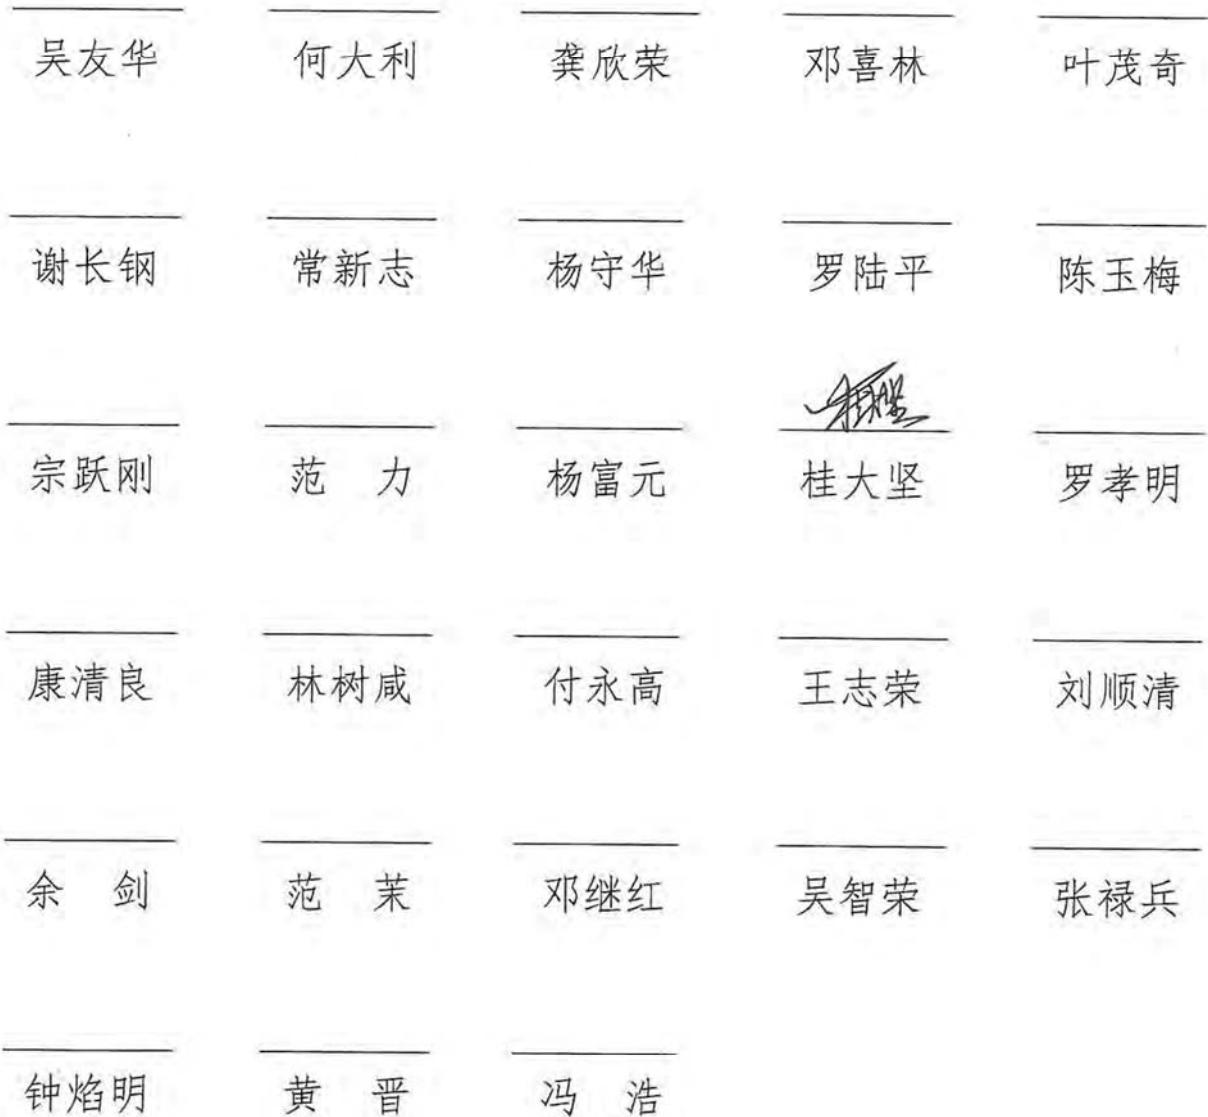 吴友华 何大利 龚欣荣 邓喜林 叶茂奇
谢长钢 常新志 杨守华 罗陆平 陈玉梅
宗跃刚 范 力 杨富元 桂大坚 罗孝明
康清良 林树咸 付永高 王志荣 刘顺清
余 剑 范 茉 邓继红 吴智荣 张禄兵
钟焰明 黄 晋 冯 浩